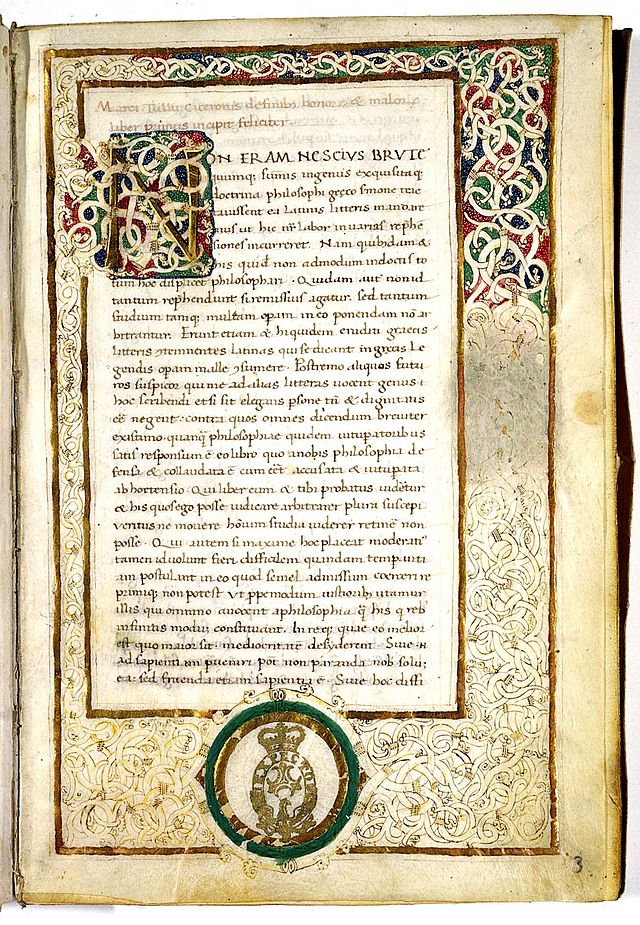 Marci Tullii Ciceronis de finibꝰ honoꝝ & maloꝝ
liber primus incipit feliciter
NON ERAM NESCIVS BRVTE
quumq; sumis ingeniis exquisitaq;
doctrina philosophi greco sermone trac
tauissent ea Latinis litteris mandare
mus ut hic nr̄ labor in uarias rephe
siones incurreret. Nam quibusdam &
his quidē non admodum indoctis to
tum hoc displicet philosophari. Quidam aut non id
tantum rephendunt si remissius agatur. sed tantum
studium tamq; multam opam in eo ponendam nō ar
bitrantur. Erunt etiam & hi quidem eruditi graecis
litteris 9temnentes Latinas qui se dicant in grecis Le
gendis opam malle 9sumere. Postremo aliquos futu
ros suspicor qui me ad alias litteras uocent genus
hoc scribendi etsi sit elegans psone tn̄ & dignitatis
eē negent. contra quos omnes dicendum breuiter
existimo. quanq philosophiae quidem uitupatoribus
satis responsum ē eo libro quo a nobis philosophia de
fensa & collaudata ē cum eēt accusata & uitupata
ab hortensio. Qui liber cum & tibi probatus uidet̄ur
& his quos ego posse iudicare arbitrarer plura suscepi
ueritus ne mouere hoīum studia uiderer retinē non
posse. Qui autem si maxime hoc placeat moderatiꝰ
tamen id uolunt fieri difficilem quandam tempanti
am postulant in eo quod semel admissum coerceri re
primiq; non potest ut ppemodum iustioribꝰ utamur
illis qui omnino auocent a philosophia q̄ his q reb
infinitis modū constituant. In req; quae eo melior
est quo maior sit mediocritatē desyderent. Siue .n.
ad sapientiam pueniri pot non paranda nob solū
ea. sed fruenda etiam sapientia ē. Siue hoc diffi
3